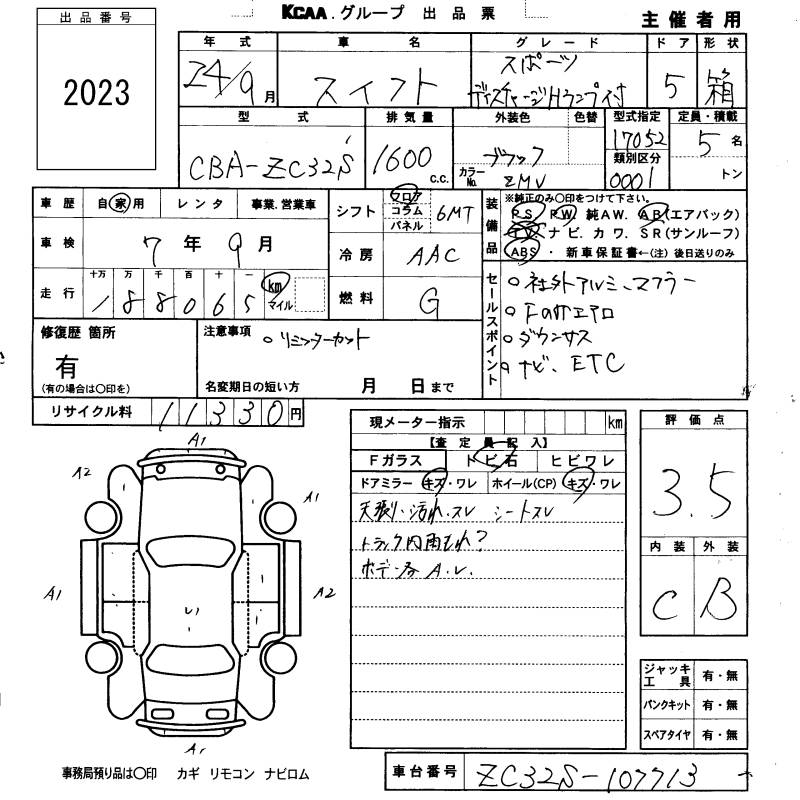 KCAA.グループ 出品票
主催者用
出品番号
2023
年式 車名 グレード ドア 形状
24/9月 スイフト スポーツ 5 箱
型式 排気量 外装色 色替 型式指定 定員・積載
CBA-ZC32S 1600 c.c. ブラック 17052 5名
カラーNo. ZMV 類別区分 0001 トン
車歴 自家用 レンタ 事業.営業車
シフト フロア コラム パネル 6MT
装備品 ※純正のみ○印をつけて下さい。
PS PW 純AW. AB(エアバック)
TV ナビ. カワ. SR(サンルーフ)
ABS ・ 新車保証書←(注) 後日送りのみ
車検 7年9月
冷房 AAC
走行 十万 万 千 百 十 一 km マイル
188065
燃料 G
セールスポイント
○社外アルミ、マフラー
○ダウンサス
○ナビ、ETC
修復歴 箇所
有
(有の場合は○印を)
注意事項 ○リミッターカット
名変期日の短い方 月 日まで
リサイクル料 11330円
現メーター指示 km
【査定員記入】
Fガラス トビ石 ヒビワレ
ドアミラー キズ・ワレ ホイール(CP) キズ・ワレ
天張り、汚れ、スレ シートスレ
A.U.
評価点
3.5
内装 外装
C B
A1
A2
A1
A1
A2
U1
A1
ジャッキ工具 有・無
パンクキット 有・無
スペアタイヤ 有・無
事務局預り品は○印 カギ リモコン ナビロム
車台番号 ZC32S-107713